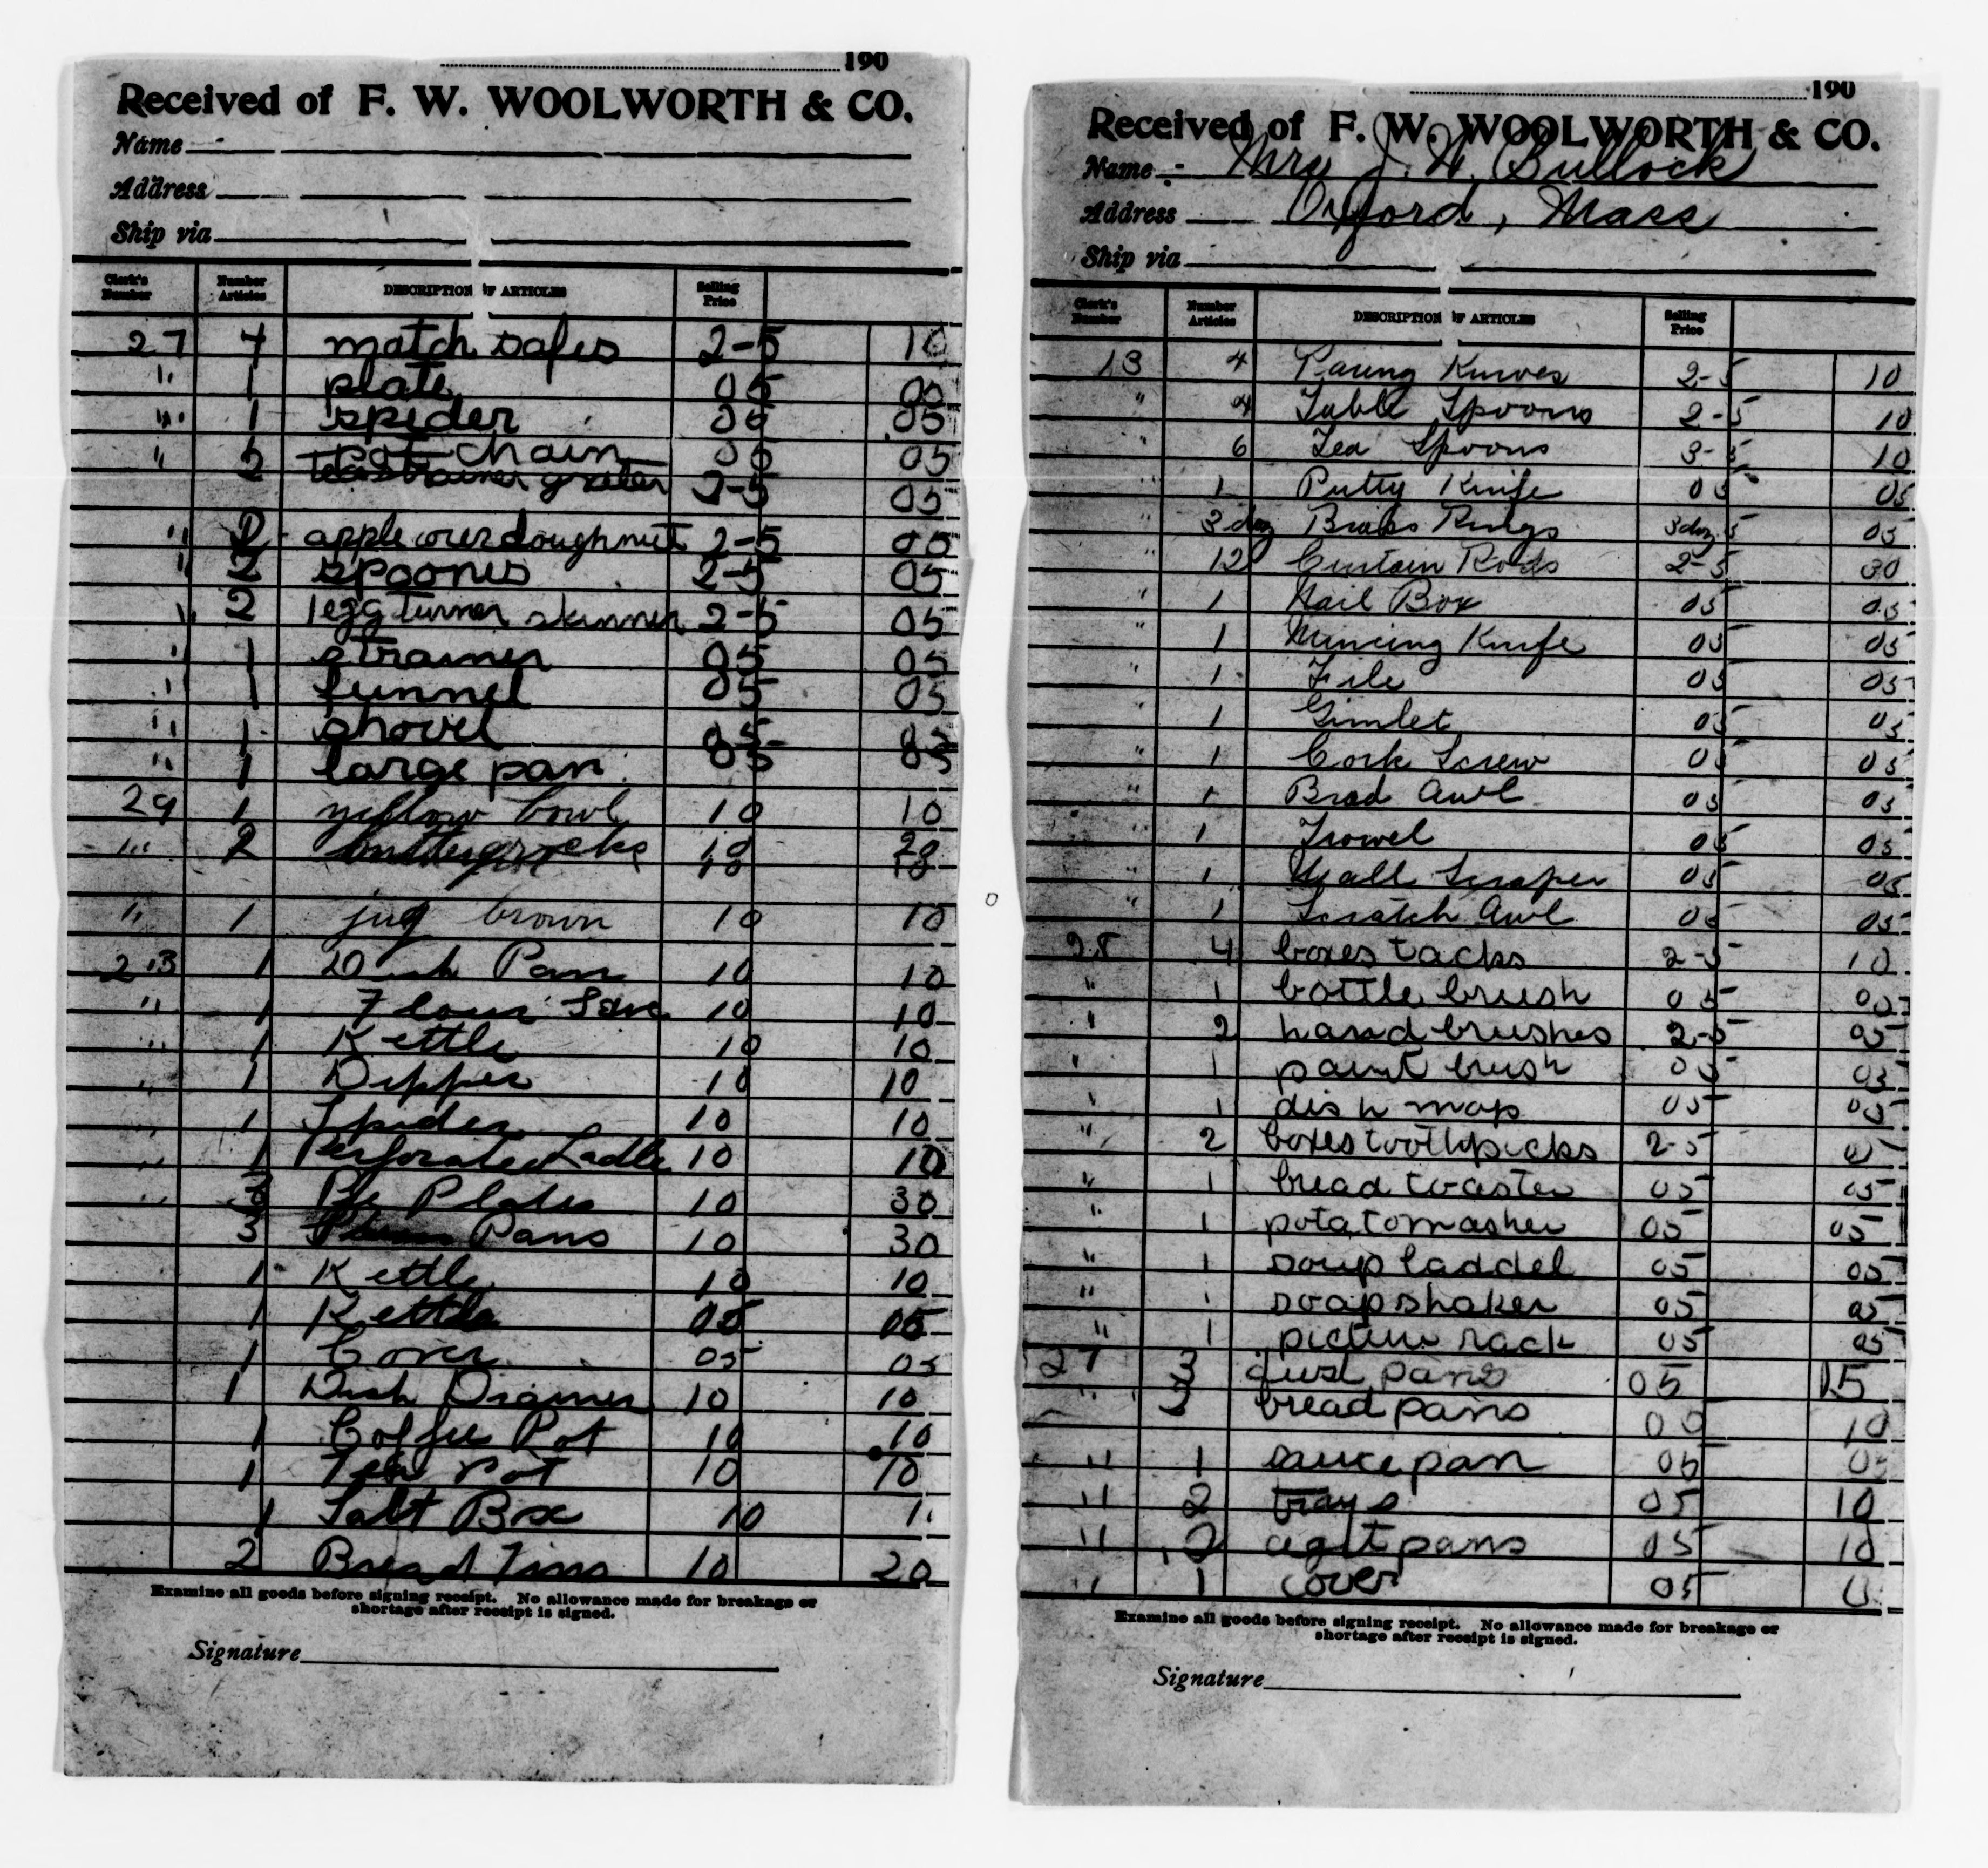 190
Received of F. W. WOOLWORTH & CO.
Name
Address
Ship via
Clerk's Number Number Articles DESCRIPTION OF ARTICLES Selling Price
27 4 match safes 2-5 10
" 1 plate 05 05
" 1 spider 05 05
" pot chain 05 05
2 teastrainer grater 2-5 05
" 2 apple corer doughnut 2-5 05
" 2 spoones 2-5 05
" 2 1 egg turner skinner 2-5 05
" 1 strainer 05 05
" 1 funnel 05 05
" 1 shovel 05 05
" 1 large pan 05 05
29 1 yellow bowl 10 10
" 2 buttercrocks 10 20
" 1 jug brown 10 10
213 1 Dish Pan 10 10
" 1 Flour Seve 10 10
" 1 Kettle 10 10
" 1 Dipper 10 10
" 1 Spider 10 10
" 1 Perforated Ladle 10 10
" 3 Pie Plates 10 30
3 Pans 10 30
1 Kettle 10 10
1 Kettle 05 05
1 Cover 05 05
1 Dish Drainer 10 10
1 Coffee Pot 10 10
1 Tea Pot 10 10
1 Salt Box 10 1
2 Bread Tins 10 20
Examine all goods before signing receipt. No allowance made for breakage or
shortage after receipt is signed.
Signature
190
Received of F. W. WOOLWORTH & CO.
Name Mrs J. W. Bullock
Address Oxford, Mass
Ship via
Clerk's Number Number Articles DESCRIPTION OF ARTICLES Selling Price
13 4 Paring Knives 2-5 10
" 4 Table Spoons 2-5 10
" 6 Tea Spoons 3-5 10
" 1 Putty Knife 05 05
" 3 doz Brass Rings 3doz 5 05
" 12 Curtain Rods 2-5 30
" 1 Nail Box 05 05
" 1 Mincing Knife 05 05
" 1 File 05 05
" 1 Gimlet 05 05
" 1 Cork Screw 05 05
" 1 Brad Awl 05 05
" 1 Trowel 05 05
" 1 Wall Scraper 05 05
" 1 Scratch Awl 05 05
25 4 boxes tacks 2-5 10
" 1 bottle brush 05 05
" 2 hand brushes 2-5 05
" 1 paint brush 05 05
" 1 dish mop 05 05
" 2 boxes toothpicks 2-5
" 1 bread toaster 05 05
" 1 potatomasher 05 05
" 1 soup laddel 05 05
" 1 soap shaker 05 05
" 1 picture rack 05 05
27 3 dust pans 05 15
" bread pans 10
" 1 saucepan 05 05
" 2 trays 05 10
" 2 agate pans 05 10
" 1 cover 05
Examine all goods before signing receipt. No allowance made for breakage or
shortage after receipt is signed.
Signature